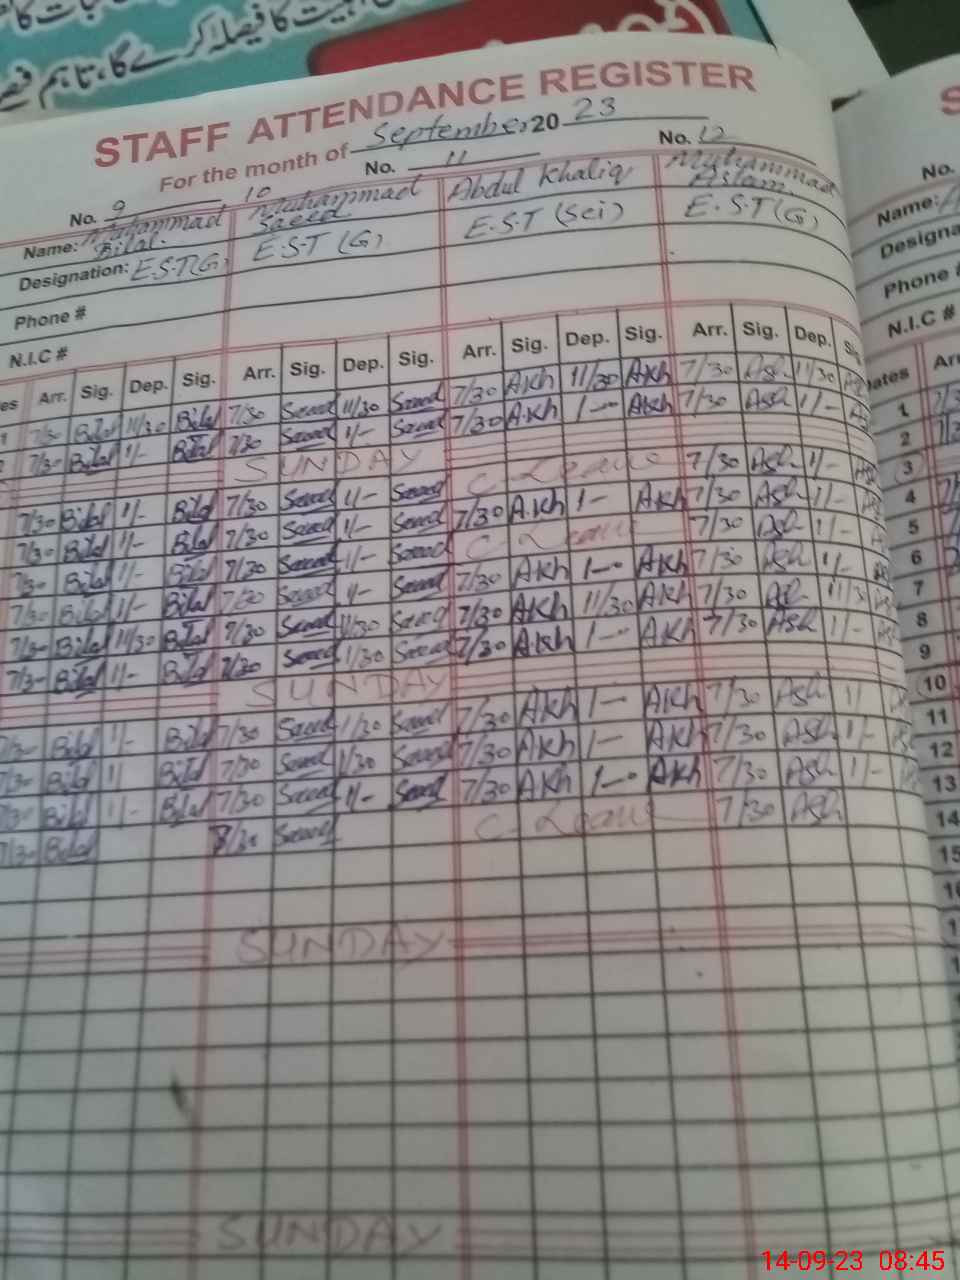 بیت کا فیصلہ کرے گا، تاہم
STAFF ATTENDANCE REGISTER
For the month of September 2023
No. 9 10 No. 11 No. 12
Name: Muhammad Bilal. Muhammad Saeed Abdul Khaliq Muhammad Aslam
Designation: E.S.T(G) E.S.T (G) E.S.T (Sci) E.S.T (G)
Phone #
N.I.C #
Arr. Sig. Dep. Sig. Arr. Sig. Dep. Sig. Arr. Sig. Dep. Sig. Arr. Sig. Dep.
1 7/30 Bilal 11/30 Bilal 7/30 Saeed 11/30 Saeed 7/30 AKh 11/30 AKh 7/30 Ash 11/30
7/30 Bilal 1/- Bilal 7/30 Saeed 1/- Saeed 7/30 AKh 1- AKh 7/30 Ash 1/-
SUNDAY
7/30 Bilal 1/- Bilal 7/30 Saeed 1/- Saeed C-Leave 7/30 Ash 1/-
7/30 Bilal 1/- Bilal 7/30 Saeed 1/- Saeed 7/30 AKh 1- AKh 7/30 Ash 1/-
7/30 Bilal 1/- Bilal 7/30 Saeed 1/- Saeed C-Leave 7/30 Ash 1/-
7/30 Bilal 1/- Bilal 7/30 Saeed 1/- Saeed 7/30 AKh 1- AKh 7/30 Ash 1/-
7/30 Bilal 11/30 Bilal 7/30 Saeed 11/30 Saeed 7/30 AKh 11/30 AKh 7/30 Ash 11/3
7/30 Bilal 1/- Bilal 7/30 Saeed 1/30 Saeed 7/30 AKh 1- AKh 7/30 Ash 1/-
SUNDAY
7/30 Bilal 1/- Bilal 7/30 Saeed 1/30 Saeed 7/30 AKh 1- AKh 7/30 Ash 1/
7/30 Bilal 1/ Bilal 7/30 Saeed 1/30 Saeed 7/30 AKh 1- AKh 7/30 Ash 1/-
7/30 Bilal 1/- Bilal 7/30 Saeed 1/- Saeed 7/30 AKh 1- AKh 7/30 Ash 1/-
7/30 Bilal 8/30 Saeed C-Leave 7/30 Ash
SUNDAY
SUNDAY
No.
Name:
Phone #
N.I.C #
1
2
3
4
5
6
7
8
9
10
11
12
13
14
15
14-09-23 08:45